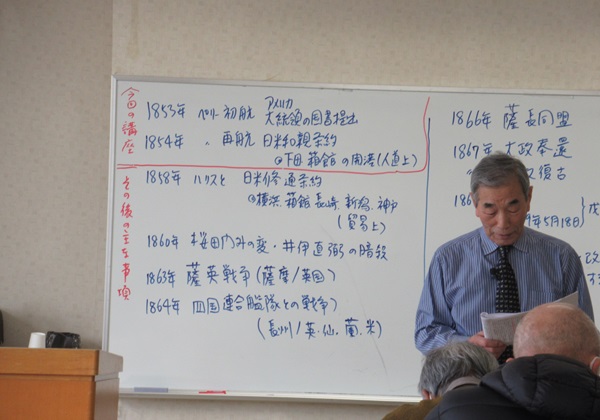 今回の講座
1853年 ペリー 初航 アメリカ
大統領の国書提出
1854年 〃 再航 日米和親条約
◎下田 箱館の開港(人道上)
その後の主な事項
1858年 ハリスと 日米修通条約
◎横浜、箱館、長崎、新潟、神戸
(貿易上)
1860年 桜田門外の変・井伊直弼の暗殺
1863年 薩英戦争(薩摩/英国)
1864年 四国連合艦隊との戦争)
(長州/英.仏.蘭.米)
1866年 薩長同盟
1867年 大政奉還
復古
年5月18日)